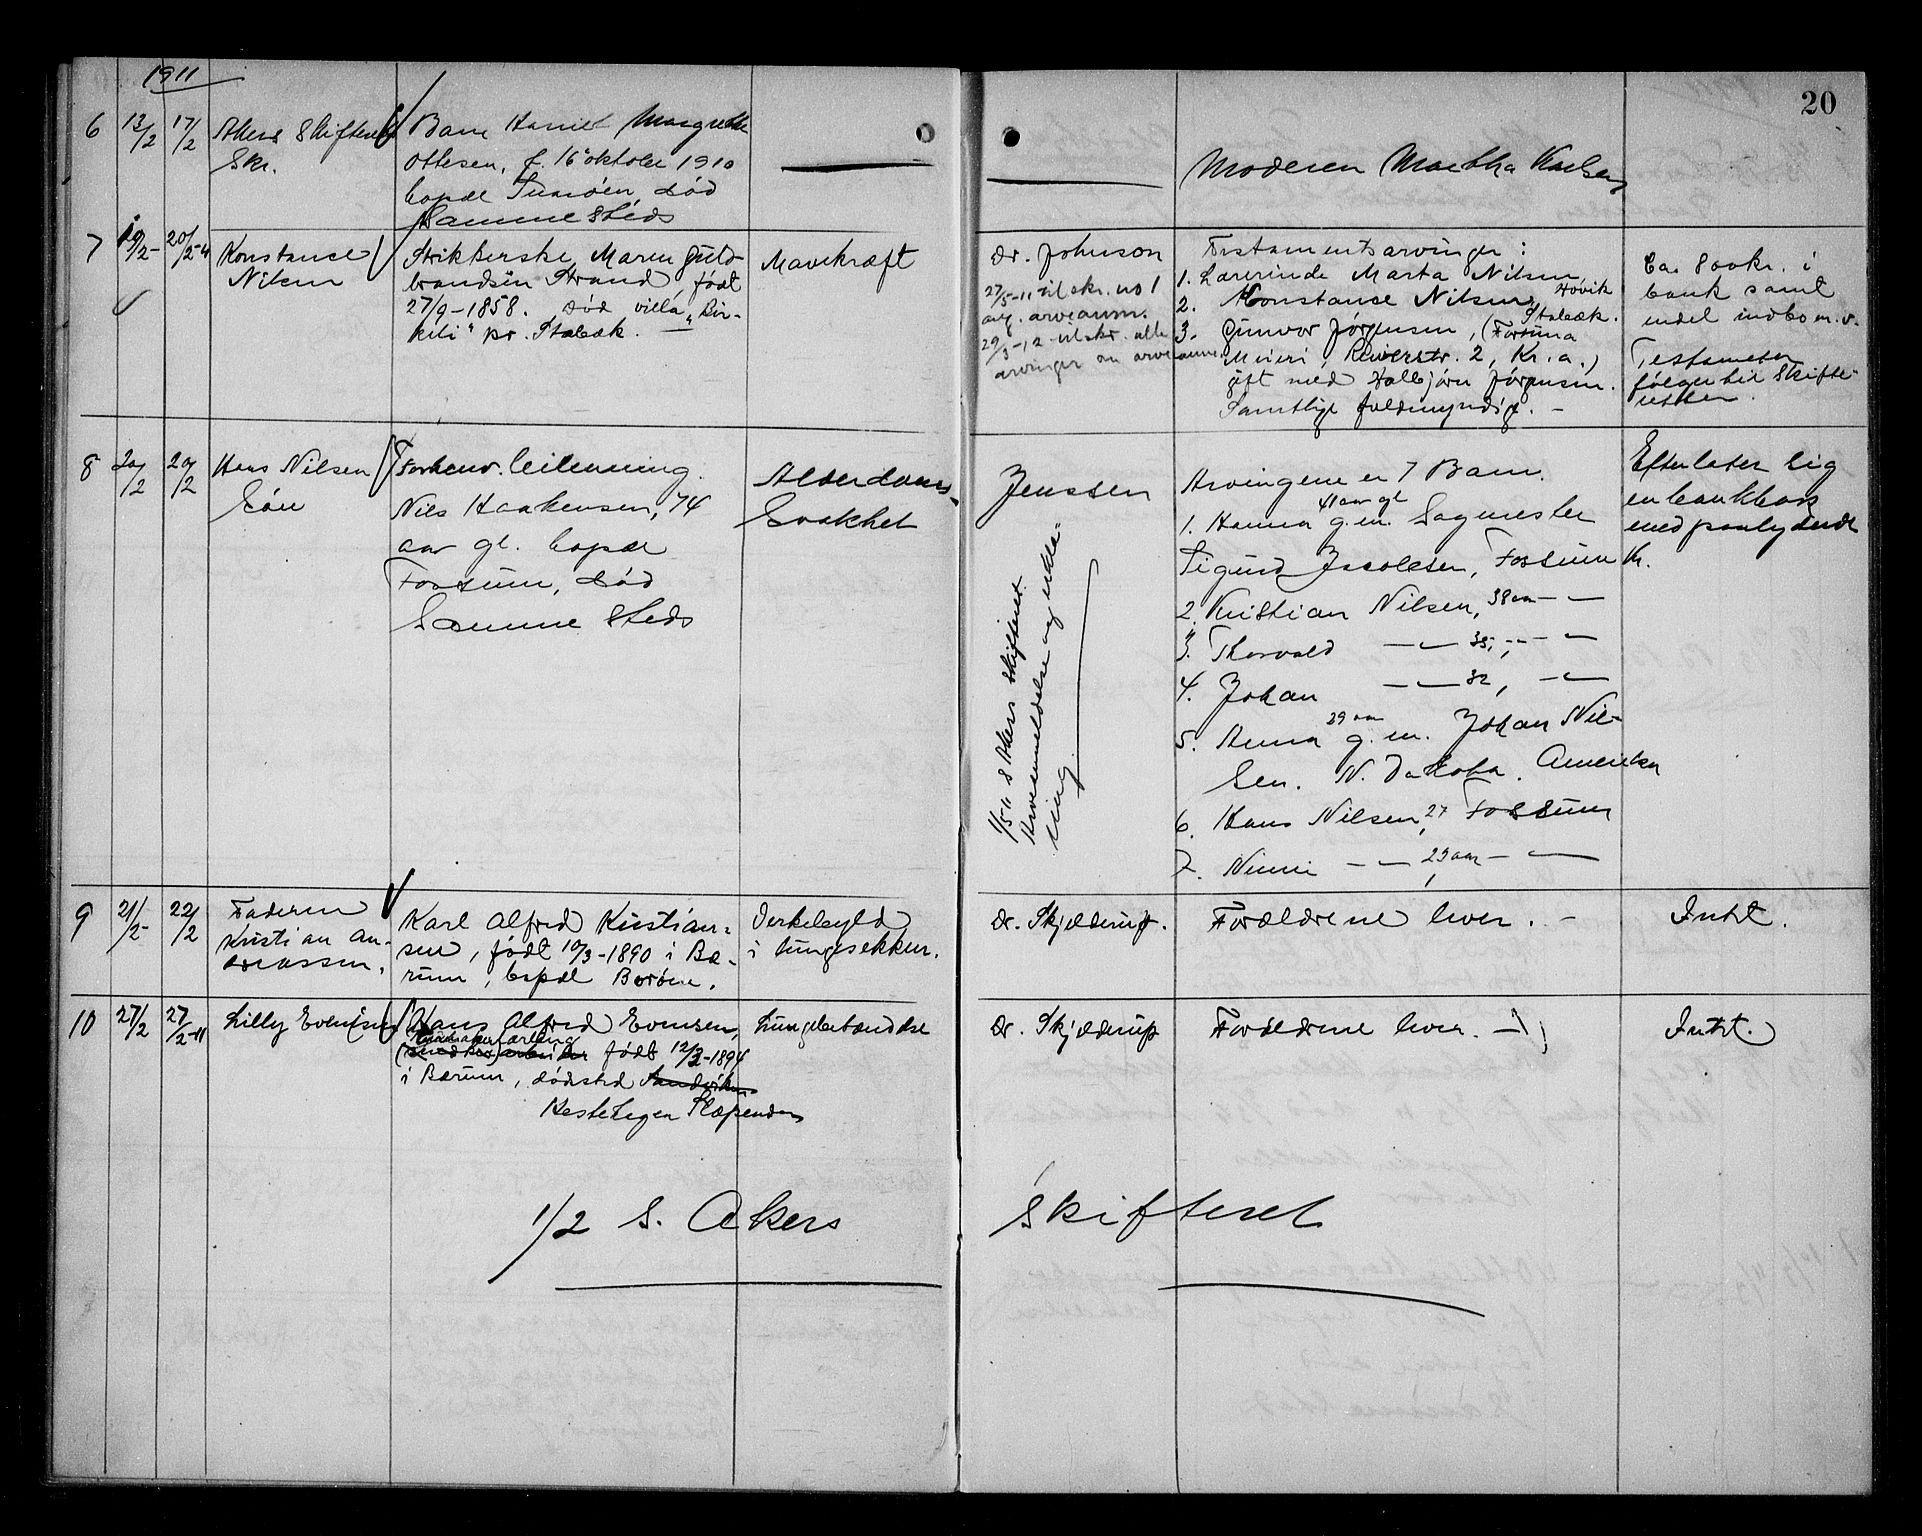 1911
20
6 13/2 17/2 Akers Skifteret
Skr.
Barn Harriet Margrethe
Ottesen, f. 16 oktober 1910
bopæl død
Sammesteds
Moderen Martha Karlsen
7 19/2 - 20/2-11 Konstance
Nilsen
Strikkerske Maren Guld-
brandsen Strand, født
27/9-1858. Død villa „Bir-
keli" pr. Stabæk.
Mavekræft
Dr. Johnson
27/5-11 til skr. no 1
ang. arveanm.
29/3-12 til skr. alle
arvinger om arveanm.
Testamentsarvinger:
1. Lærerinde Marta Nilsen
2. Konstance Nilsen, Høvik
Stabæk.
3. Gunvor Jørgensen, (Fossum
Meieri, 2, Kr.a.)
gift med Halbjørn Jørgensen.
Samtlige fuldmyndige. -
Ca. 800 kr. i
bank samt
endel indbo m.v.
Testamenter
følger til Skifte-
retten.
8 20/2 20/2 Hans Nilsen
Søn
Forhenv. Leilending
Nils Haakensen, 74
aar gl. bopæl
Fossum, død
Sammesteds
Alderdoms-
Svakhet
Jenssen
1/5 11 S Akers Skifteret.
Arveanmeldelse og erklæ-
ring
Arvingene er 7 Barn.
41 aar gl
1. Hanna g.m. Sagmester
Sigurd Jacobsen, Fossum
2. Kristian Nilsen, 38 aar - -
3. Thorvald - - 35, - -
4. Johan - - 32, - -
29 aar
5. Anna g.m. Johan Nil-
sen. N. Dakota. Amerika
6. Hans Nilsen, 27 Fossum
7. - - 23 aar - -
Efterlater sig
en bankbok
med paalydende
Kr.
9 21/2 22/2 Faderen
Kristian An-
dreassen.
Karl Alfred Kristian-
sen, født 10/3-1890 i Bæ-
rum, bopæl
i lungesækken.
Dr. Skjelderup.
Forældrene lever. -
Intet.
10 27/2 27/2-11 Lilly Evensen
Hans Alfred Evensen,
lærling
født 12/3-1894
i Bærum, dødssted Sandviken
Slæpenden
Lungebetændelse
Dr. Skjelderup
Forældrene lever. -
Intet.
1/2 S. Akers Skifteret